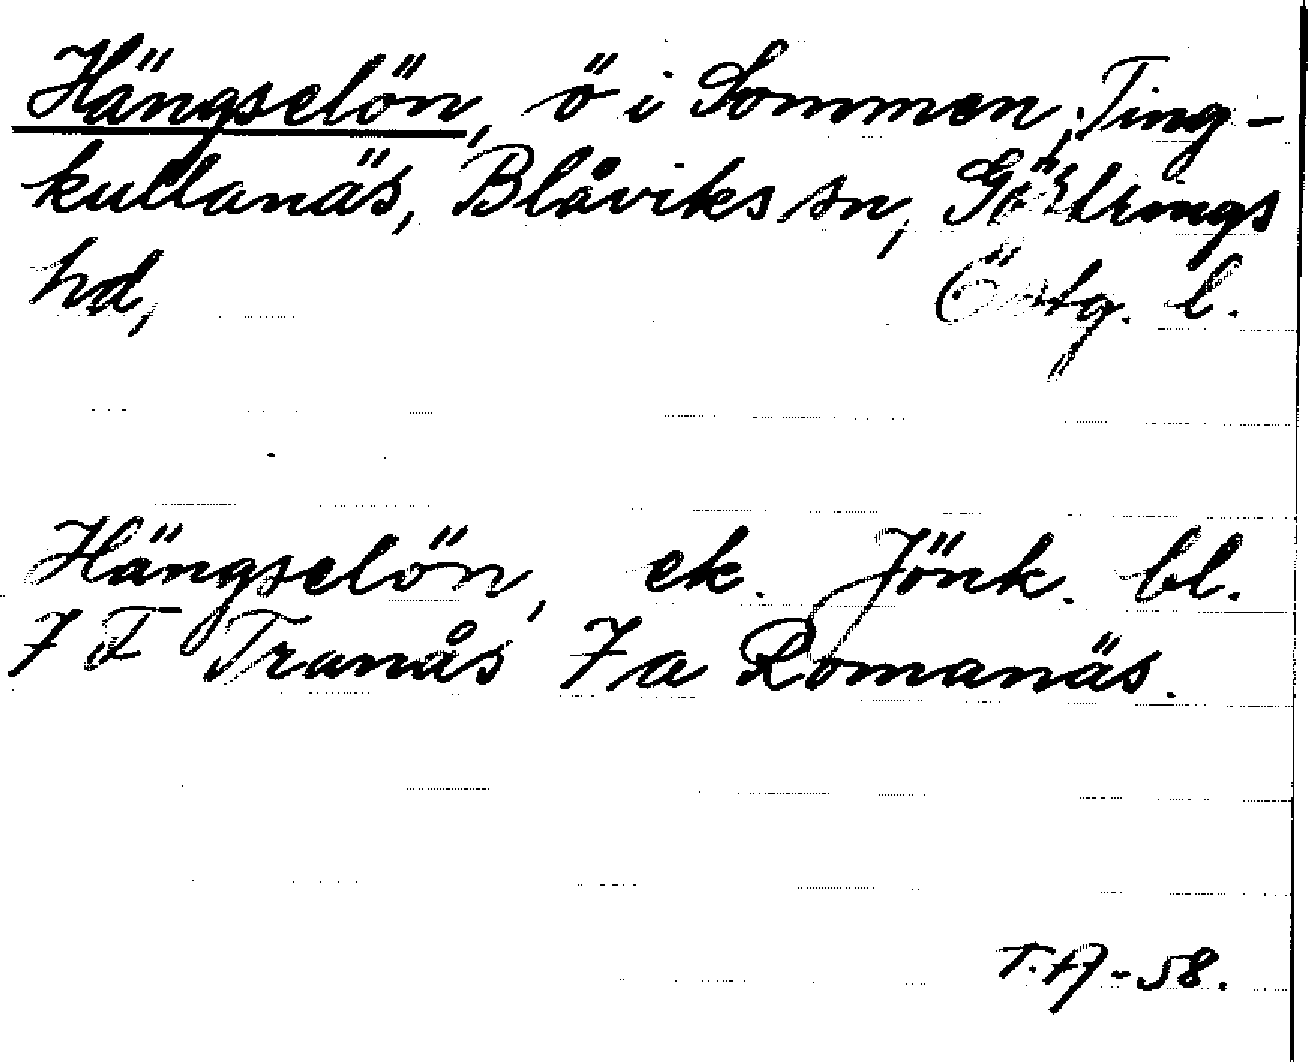 Hängselön, ö i Sommen, Ting-
kullanäs, Blåviks sn, Göstrings
hd, Östg. l.
Hängselön, ek. Jönk. bl.
7 F Tranås 7 a Romanäs.
T.A-58.